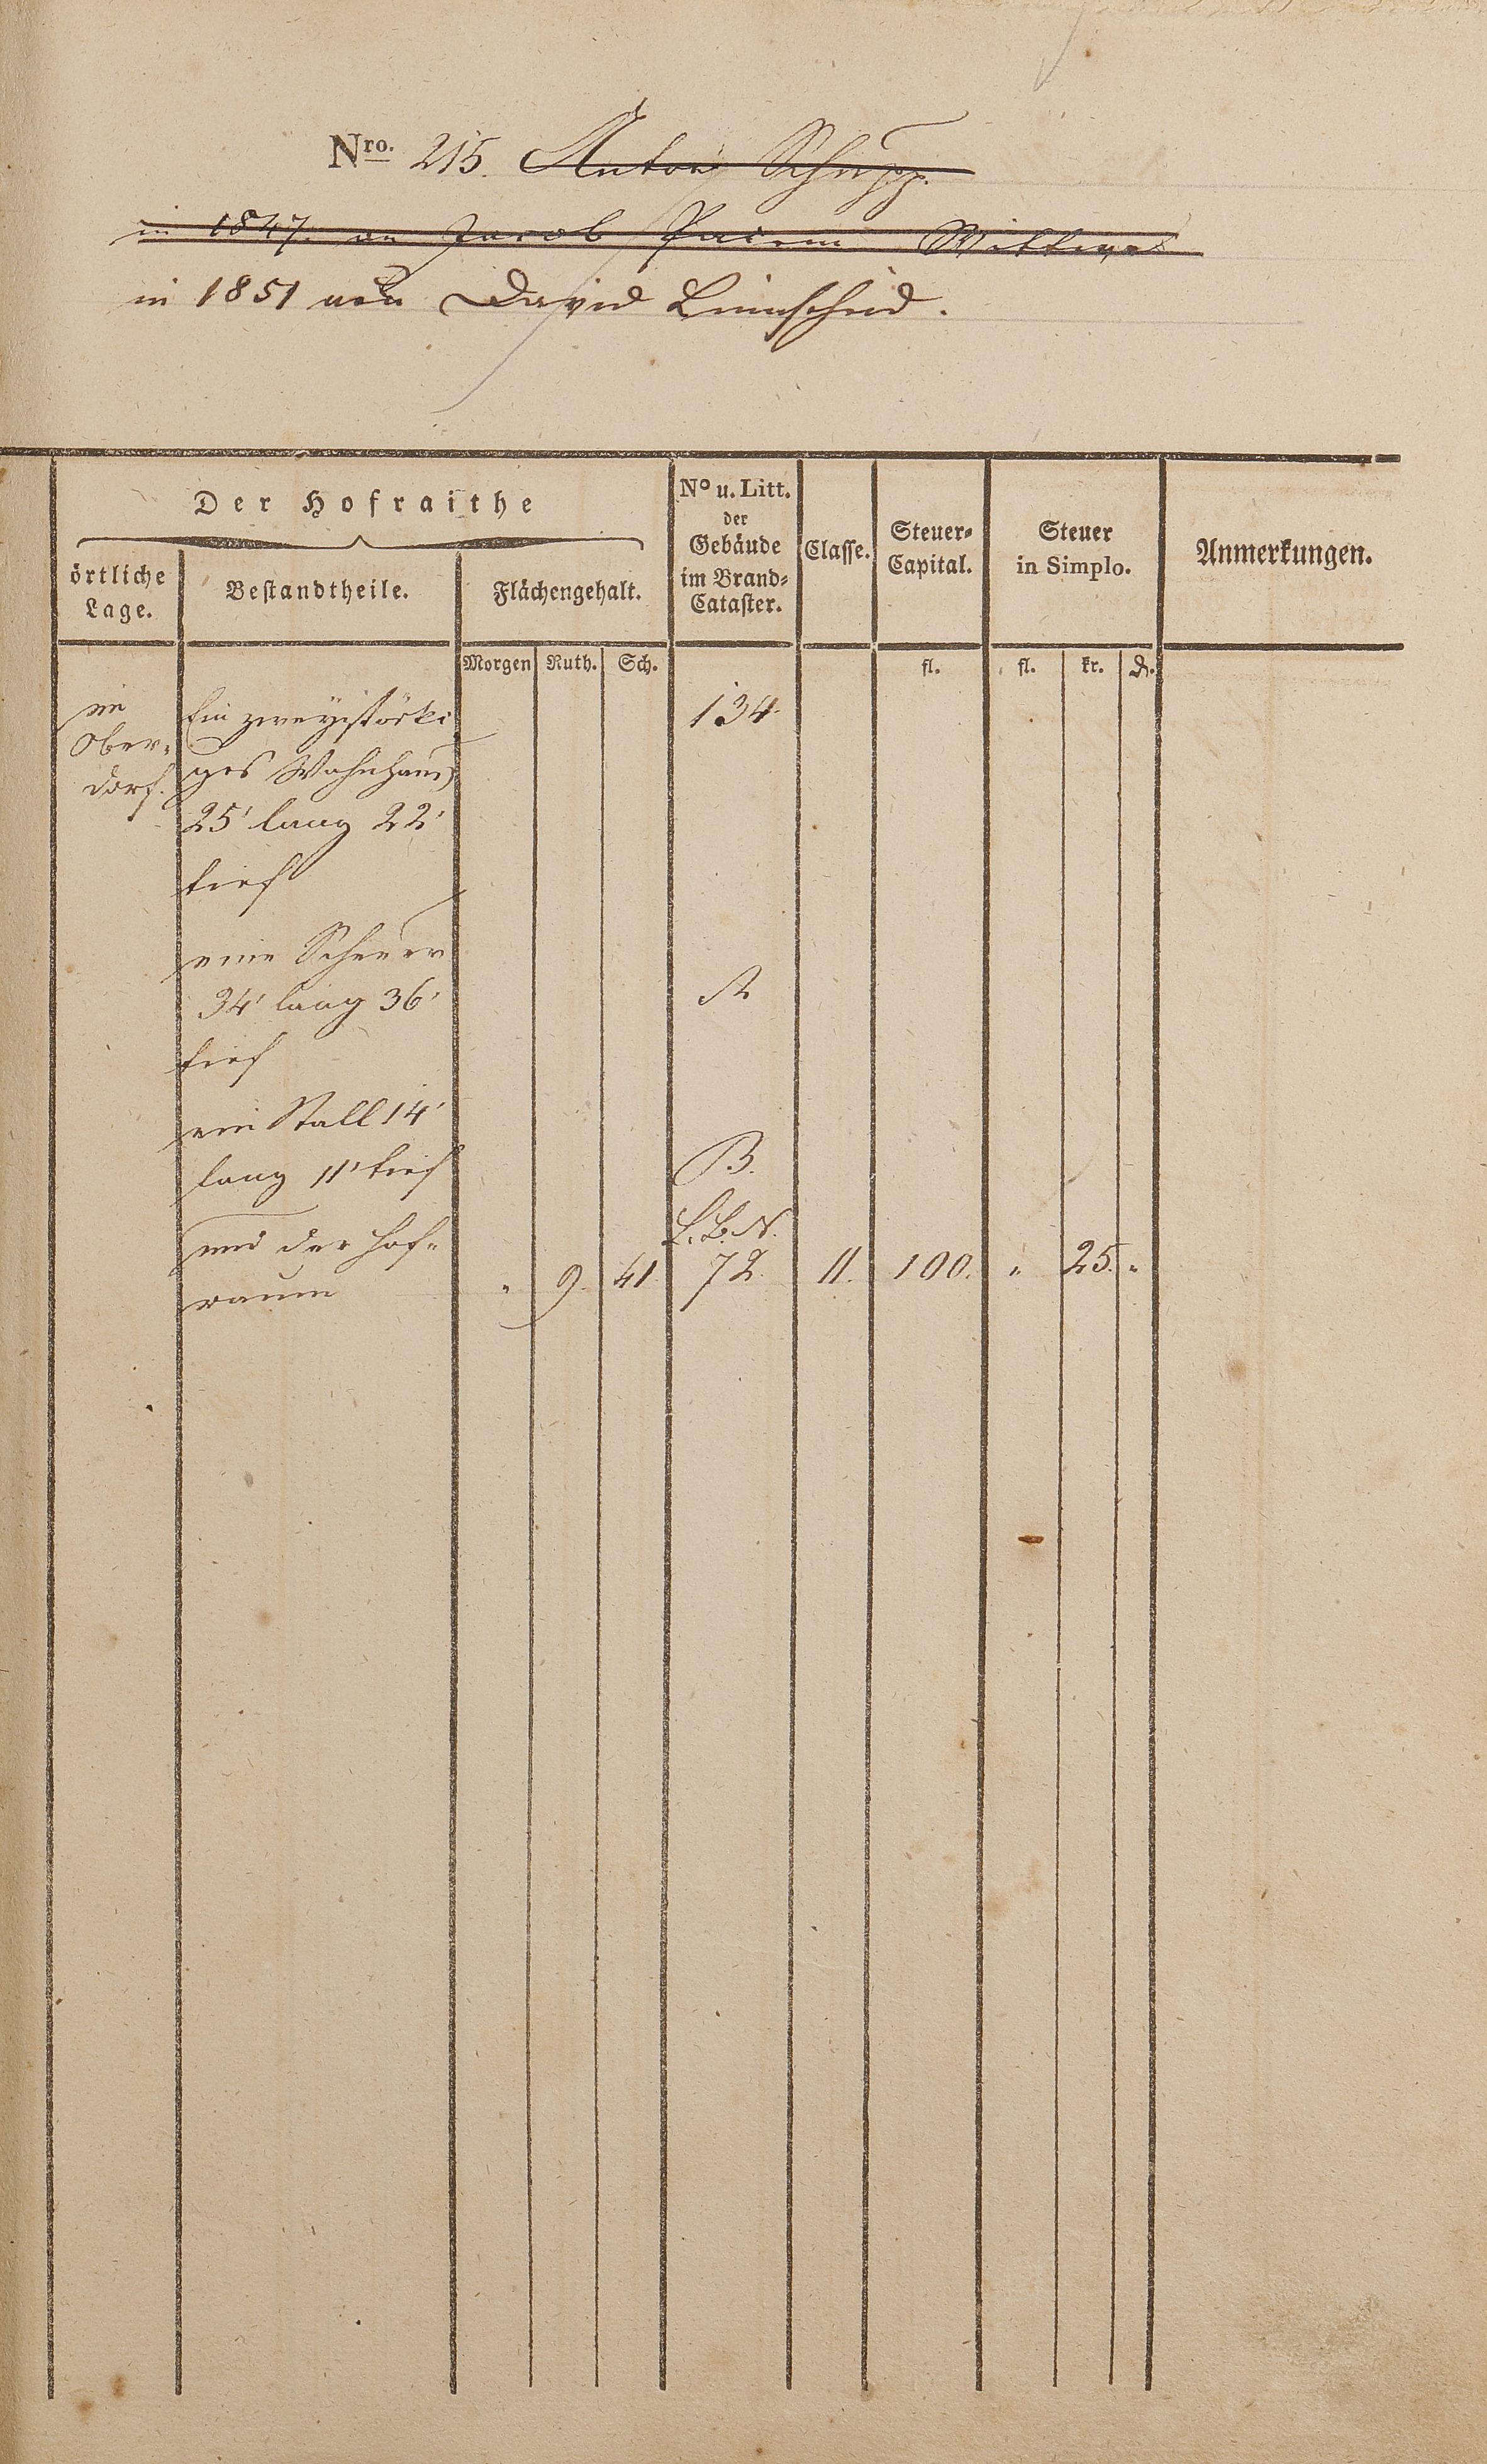 Nro. 215. Anton Schupp.
in 1847. an Jacob Wittwe
in 1851 von David Linnscheid.
Der Hofraithe
örtliche Lage.
Bestandtheile.
Flächengehalt.
No u. Litt. der Gebäude im Brand-Cataster.
Classe.
Steuer-Capital.
Steuer in Simplo.
Anmerkungen.
Morgen Ruth. Sch. fl. fl. kr. d.
im
Ober-
dorf.
Ein zweystöcki 134.
ges Wohnhaus
25' lang 22'
tief
eine Scheuer
34' lang 36' A
tief
ein Stall 14'
lang 11' tief B.
und der Hof- L. B. N.
raum " 9. 41. 72. 11. 100. " 25. "